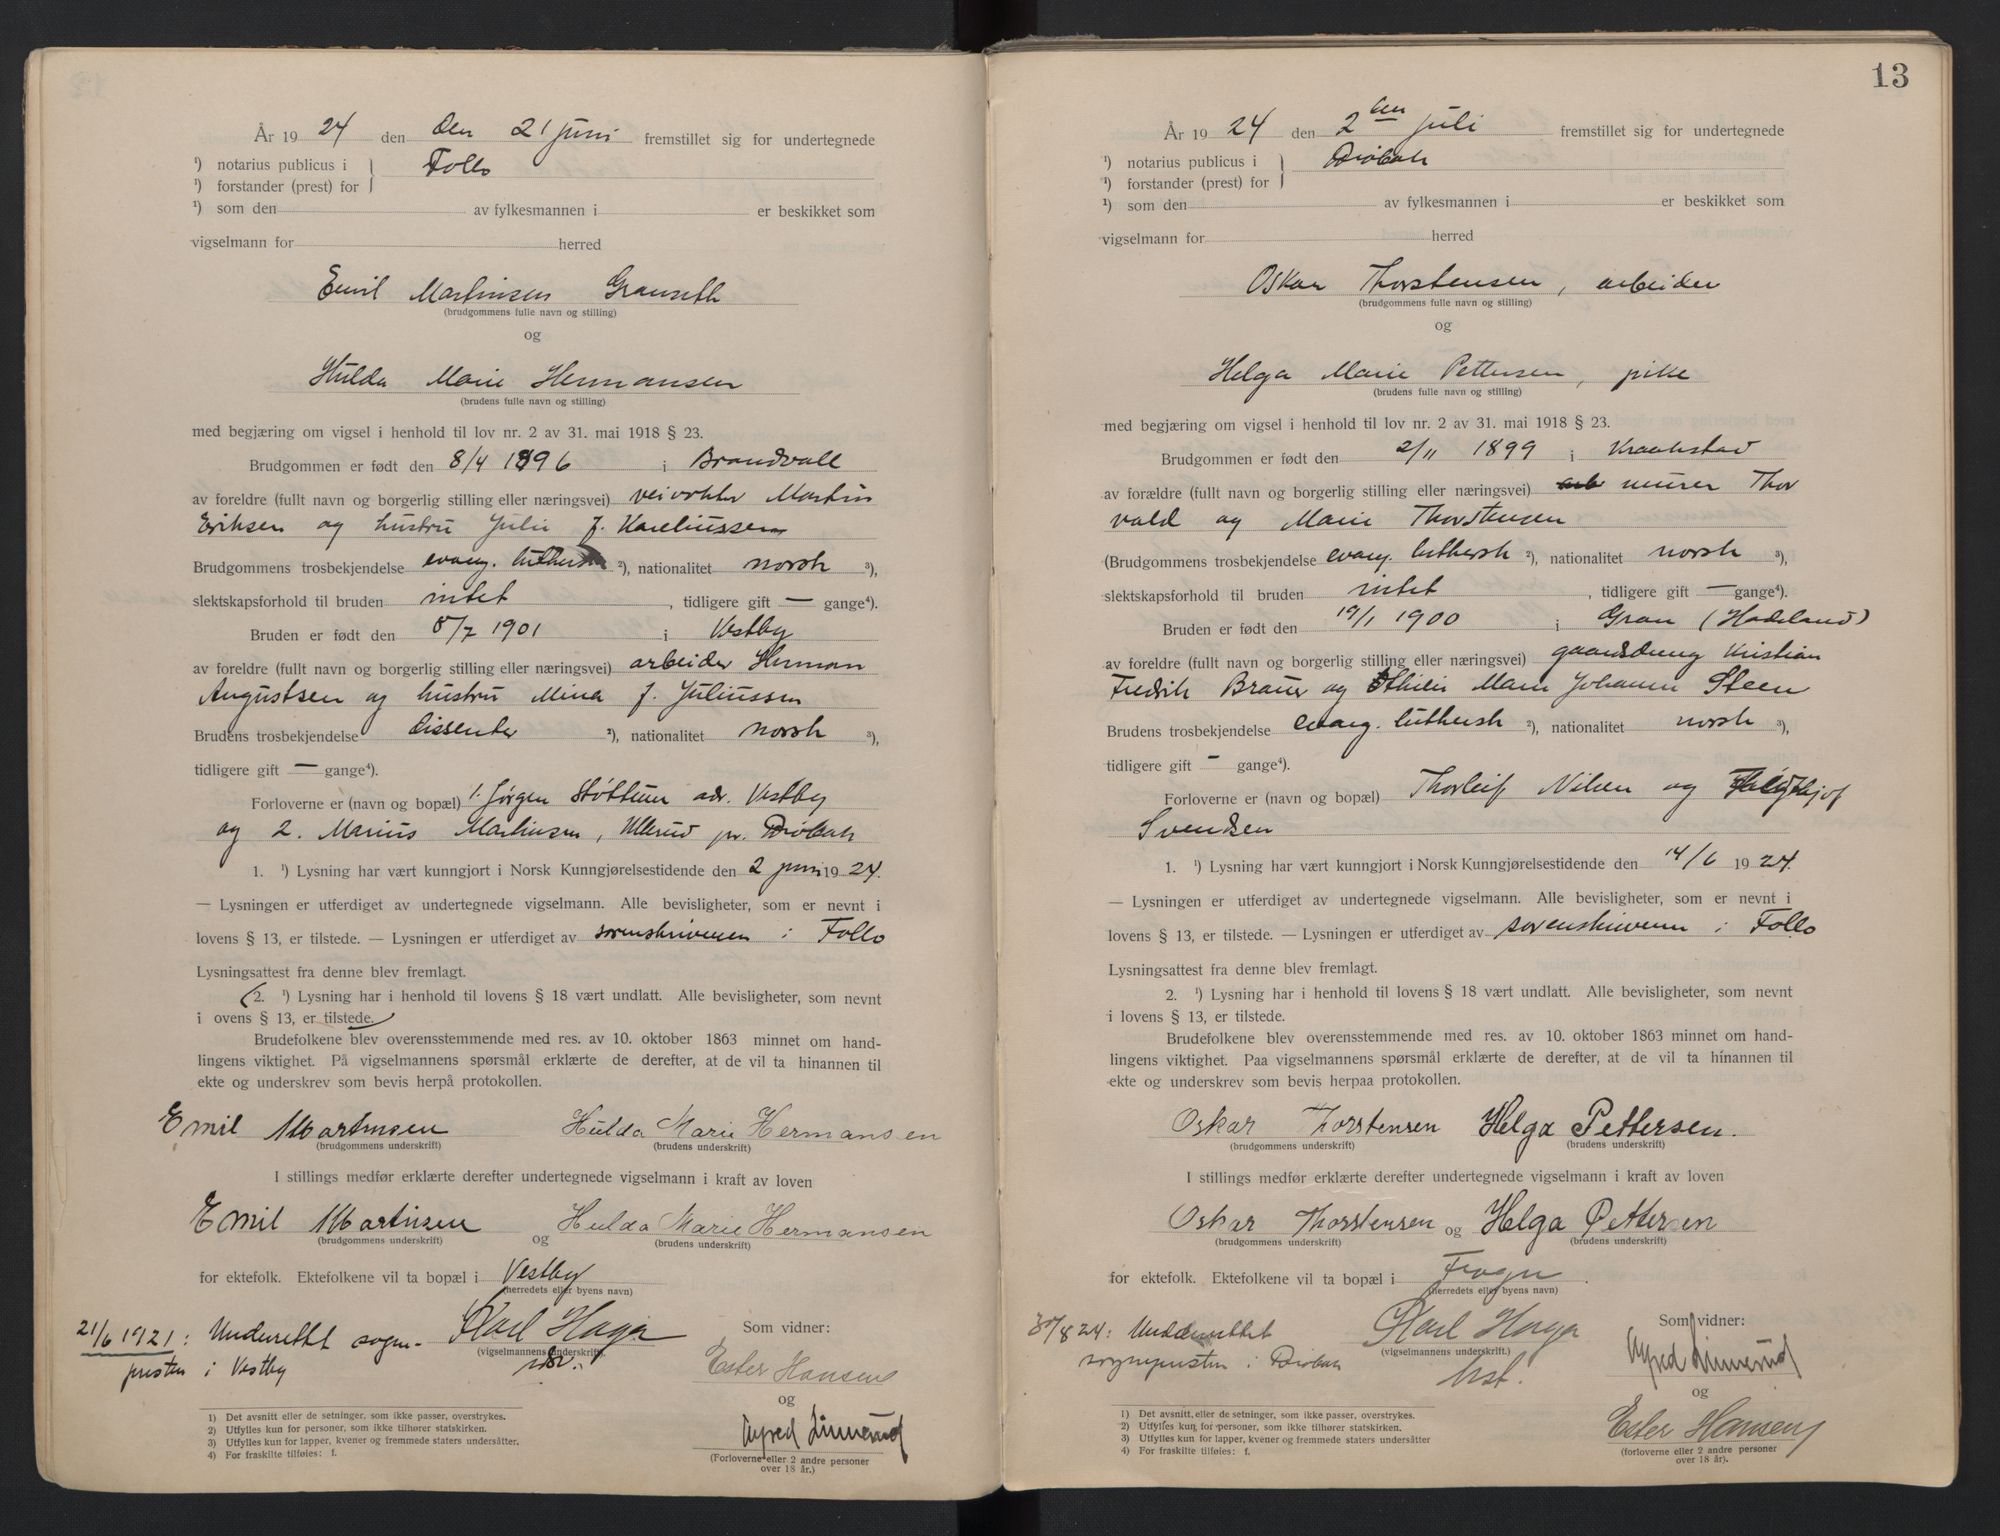 År 1924 den Den 21 juni fremstillet sig for undertegnede
¹) notarius publicus i } Follo
¹) forstander (prest) for
¹) som den av fylkesmannen i er beskikket som
vigselmann for herred
Emil Martinsen Granseth
(brudgommens fulle navn og stilling)
og
Hulda Marie Hermansen
(brudens fulle navn og stilling)
med begjæring om vigsel i henhold til lov nr. 2 av 31. mai 1918 § 23.
Brudgommen er født den 8/4 1896 i Brandvall
av foreldre (fullt navn og borgerlig stilling eller næringsvei) veivokter Martin
Eriksen og hustru Julie f. Kareliussen
Brudgommens trosbekjendelse evang. luthersk ²), nationalitet norsk ³),
slektskapsforhold til bruden intet, tidligere gift — gange⁴).
Bruden er født den 5/7 1901 i Vestby
av foreldre (fullt navn og borgerlig stilling eller næringsvei) arbeider Herman
Augustsen og hustru Mina f. Juliussen
Brudens trosbekjendelse dissenter ²), nationalitet norsk ³),
tidligere gift — gange⁴).
Forloverne er (navn og bopæl) 1. Jørgen Støttum adr. Vestby
og 2. Marius Martinsen, Ullerud pr. Drøbak
1. ¹) Lysning har vært kunngjort i Norsk Kunngjørelsestidende den 2 juni 1924.
— Lysningen er utferdiget av undertegnede vigselmann. Alle bevisligheter, som er nevnt i
lovens § 13, er tilstede. — Lysningen er utferdiget av sorenskriveren i Follo
Lysningsattest fra denne blev fremlagt.
(2. ¹) Lysning har i henhold til lovens § 18 vært undlatt. Alle bevisligheter, som nevnt
i ovens § 13, er tilstede.)
Brudefolkene blev overensstemmende med res. av 10. oktober 1863 minnet om hand-
lingens viktighet. På vigselmannens spørsmål erklærte de derefter, at de vil ta hinannen til
ekte og underskrev som bevis herpå protokollen.
Emil Martinsen Hulda Marie Hermansen
(brudgommens underskrift) (brudens underskrift)
I stillings medfør erklærte derefter undertegnede vigselmann i kraft av loven
Emil Martinsen og Hulda Marie Hermansen
(brudgommens underskrift) (brudens underskrift)
for ektefolk. Ektefolkene vil ta bopæl i Vestby
(herredets eller byens navn)
21/6 1921: Underrettet sogne-
presten i Vestby
Karl Haga
(vigselmannens underskrift)
Som vidner:
Ester Hansen
og
Alfred Linnerud
(Forloverne eller 2 andre personer
over 18 år.)
1) Det avsnitt eller de setninger, som ikke passer, overstrykes.
2) Utfylles kun for personer, som ikke tilhører statskirken.
3) Utfylles kun for lapper, kvener og fremmede staters undersåtter.
4) For fraskilte tilføies: f.
13
År 1924 den 2den juli fremstillet sig for undertegnede
¹) notarius publicus i } Drøbak
¹) forstander (prest) for
¹) som den av fylkesmannen i er beskikket som
vigselmann for herred
Oskar Thorstensen, arbeider
(brudgommens fulle navn og stilling)
og
Helga Marie Pettersen, pike
(brudens fulle navn og stilling)
med begjæring om vigsel i henhold til lov nr. 2 av 31. mai 1918 § 23.
Brudgommen er født den 2/11 1899 i Kraakstad
av forældre (fullt navn og borgerlig stilling eller næringsvei) arb murer Thor
vald og Marie Thorstensen
(Brudgommens trosbekjendelse evang. luthersk ²), nationalitet norsk ³),
slektskapsforhold til bruden intet, tidligere gift — gange⁴).
Bruden er født den 19/1 1900 i Gran (Hadeland)
av foreldre (fullt navn og borgerlig stilling eller næringsvei) gaardsdreng Kristian
Fredrik Brauer og Marie Johanne Steen
Brudens trosbekjendelse evang. luthersk ²), nationalitet norsk ³),
tidligere gift - gange⁴).
Forloverne er (navn og bopæl) Thorleif Nilsen og
Svendsen
1. ¹) Lysning har vært kunngjort i Norsk Kunngjørelsestidende den 14/6 1924.
— Lysningen er utferdiget av undertegnede vigselmann. Alle bevisligheter, som er nevnt i
lovens § 13, er tilstede. — Lysningen er utferdiget av sorenskriveren i Follo
Lysningsattest fra denne blev fremlagt.
2. ¹) Lysning har i henhold til lovens § 18 vært undlatt. Alle bevisligheter, som nevnt
i lovens § 13, er tilstede.
Brudefolkene blev overensstemmende med res. av 10. oktober 1863 minnet om hand-
lingens viktighet. Paa vigselmannens spørsmål erklærte de derefter, at de vil ta hinannen til
ekte og underskrev som bevis herpaa protokollen.
Oskar Thorstensen Helga Pettersen.
(brudgommens underskrift) (brudens underskrift)
I stillings medfør erklærte derefter undertegnede vigselmann i kraft av loven
Oskar Thorstensen og Helga Pettersen
(brudgommens underskrift) (brudens underskrift)
for ektefolk. Ektefolkene vil ta bopæl i Frogn.
(herredets eller byens navn)
30/8 24: Underrettet
sognepresten i Drøbak
Karl Haga
(vigselmannens underskrift.)
kst.
Som vidner:
Alfred Linnerud
og
Ester Hansen
(forloverne eller 2 andre personer
over 18 år).
1) Det avsnitt, eller de setninger, som ikke passer, overstrykes.
2) Utfylles kun for personer, som ikke tilhører statskirken.
3) Utfylles kun for lapper, kvener og fremmede staters undersåtter
4) For fraskilte tilføies: f.